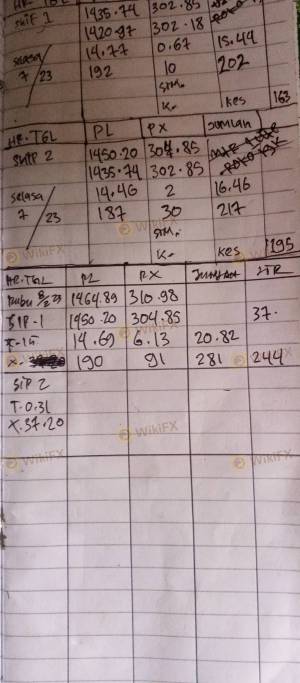 SHIF 1 1435.74 302.85
1420.97 302.18
14.77 0.67 15.44
selasa 192 10 202
7/23
STM.
K. Kes 163
HR.TGL PL PX JUMLAH
SHIP 2 1450.20 304.85
1435.74 302.85
selasa 14.46 2 16.46
7/23 187 30 217
STM.
K. Kes 195
HR.TGL PL PX JUMLAH
1464.89 310.98
SIP-1 1450.20 304.85 37.
14.69 6.13 20.82
X. 190 91 281 244
SIP 2
T.0.31
X.37.20
WikiFX
WikiFX
WikiFX
WikiFX
WikiFX
WikiFX